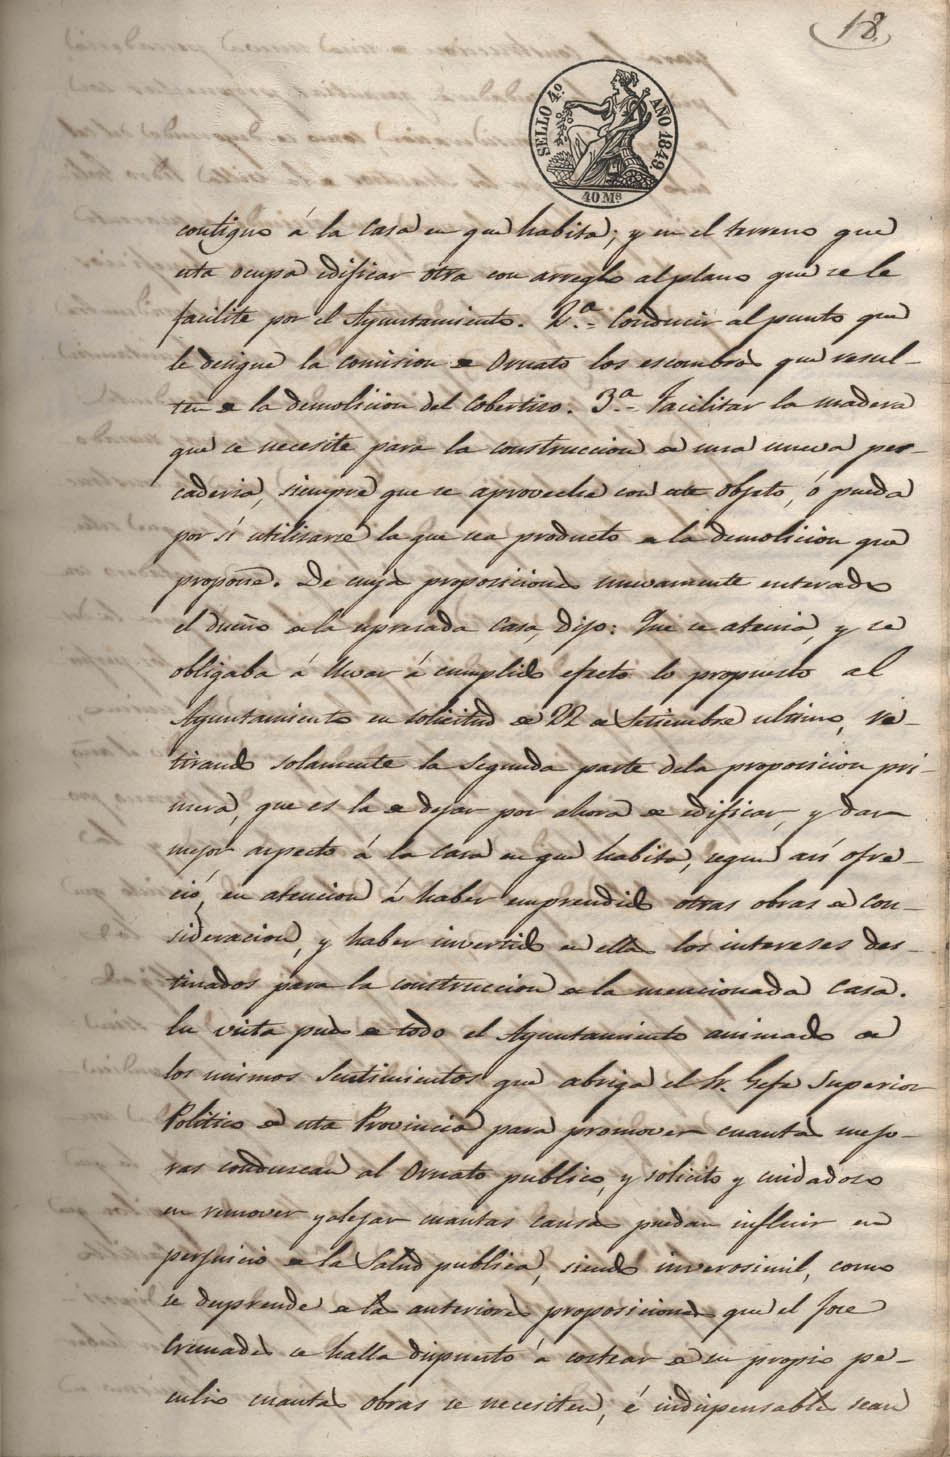 18.
SELLO 4.º AÑO 1849.
40 Ms
contiguo á la casa en que habita; y en el terreno que
esta ocupa edificar otra con arreglo al plano que se le
facilite por el Ayuntamiento. 2.ª Conducir al punto que
le designe la comision de Ornato los escombros que resul-
ten de la demolicion del cobertizo. 3.ª Facilitar la madera
que se necesite para la construccion de una nueva pes-
caderia, siempre que se aproveche con este objeto, ó pueda
por sí utilizarse la que sea producto de la demolicion que
propone. De cuyas proposiciones nuevamente enterado
el dueño de la expresada casa, dijo: Que se atenia, y se
obligaba á llevar á cumplido efecto lo propuesto al
Ayuntamiento en solicitud de 22 de Setiembre ultimo, re-
tirando solamente la segunda parte dela proposicion pri-
mera, que es la de dejar por ahora de edificar, y dar
mejor aspecto á la casa en que habita, segun asi ofre-
ció, en atencion á haber emprendido otras obras de con-
sideracion, y haber invertido en ellas los intereses des-
tinados para la construccion de la mencionada casa.
En vista pues de todo el Ayuntamiento animado de
los mismos sentimientos que abriga el Sr. Gefe Superior
Politico de esta Provincia para promover cuantas mejo-
ras conduzcan al Ornato publico, y solicito y cuidadoso
en remover y alejar cuantas causas puedan influir en
perjuicio de la Salud publica, siendo inverosimil, como
se desprende de las anteriores proposiciones que el José
Cremades se halla dispuesto á costear de su propio pe-
culio cuantas obras se necesiten, é indispensables sean